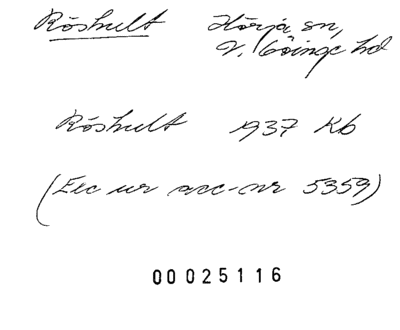 Röshult Hörja sn,
V. Göinge hd
Röshult 1937 Kb
(Exc ur acc-nr 5359)
00025116